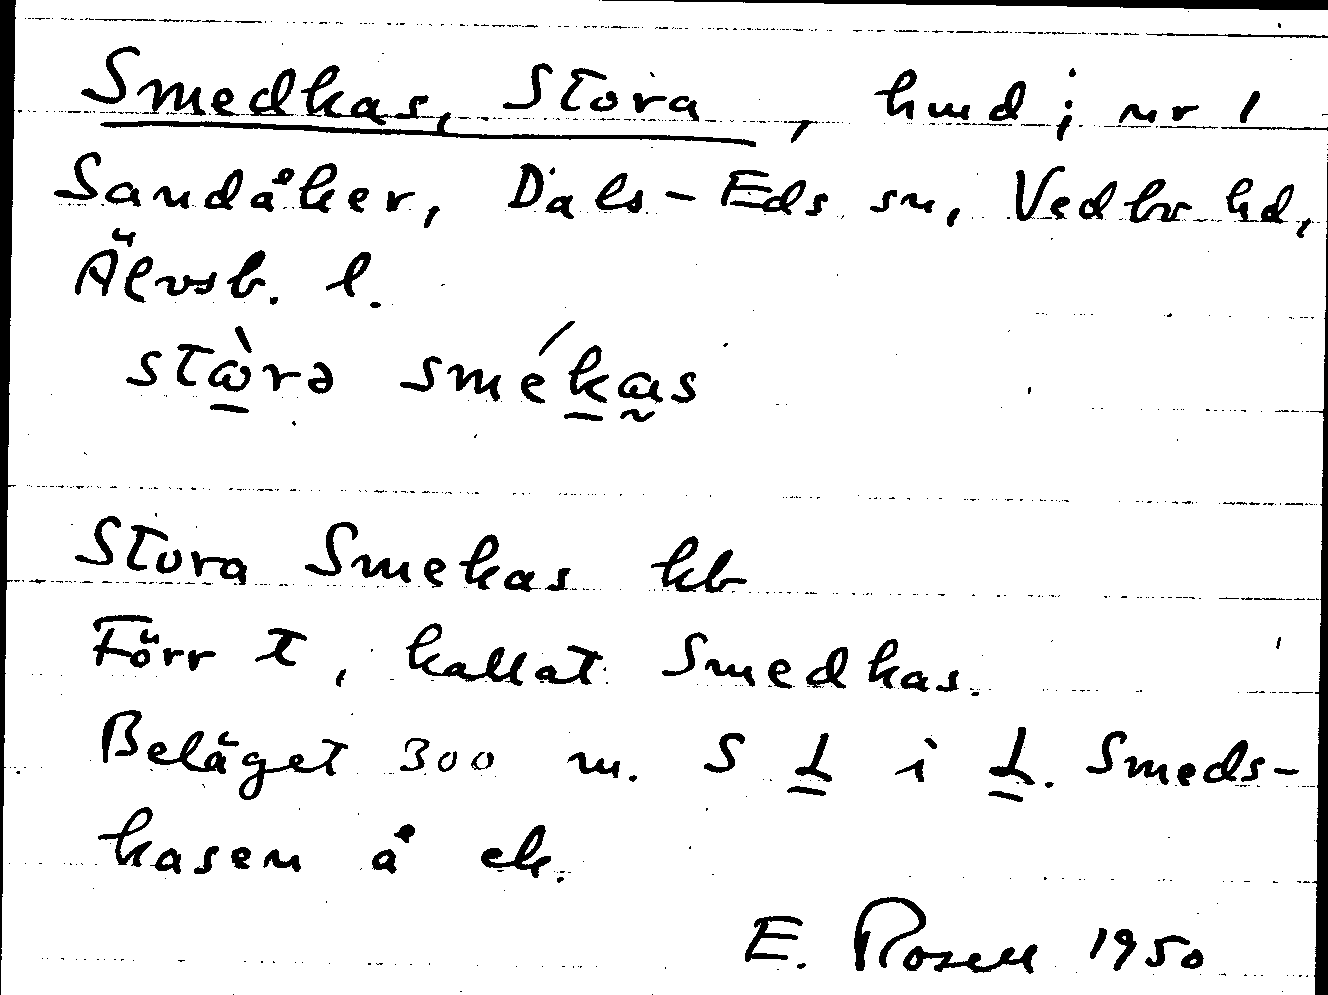 Smedkas, Stora, hmd i nr 1
Sandåker, Dals-Eds sn, Vedbo hd,
Älvsb. l.
stò̱rə sméḵa̰s
Stora Smekas kb
Förr t, kallat Smedkas.
Beläget 300 m. S L̲ i L̲. Smeds-
kasen å ek.
E. Rosell 1950